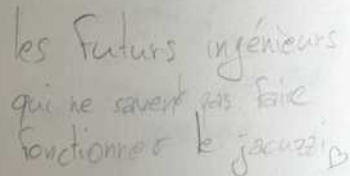 les futurs ingénieurs
qui ne savent pas faire
fonctionner le jacuzzi ♡